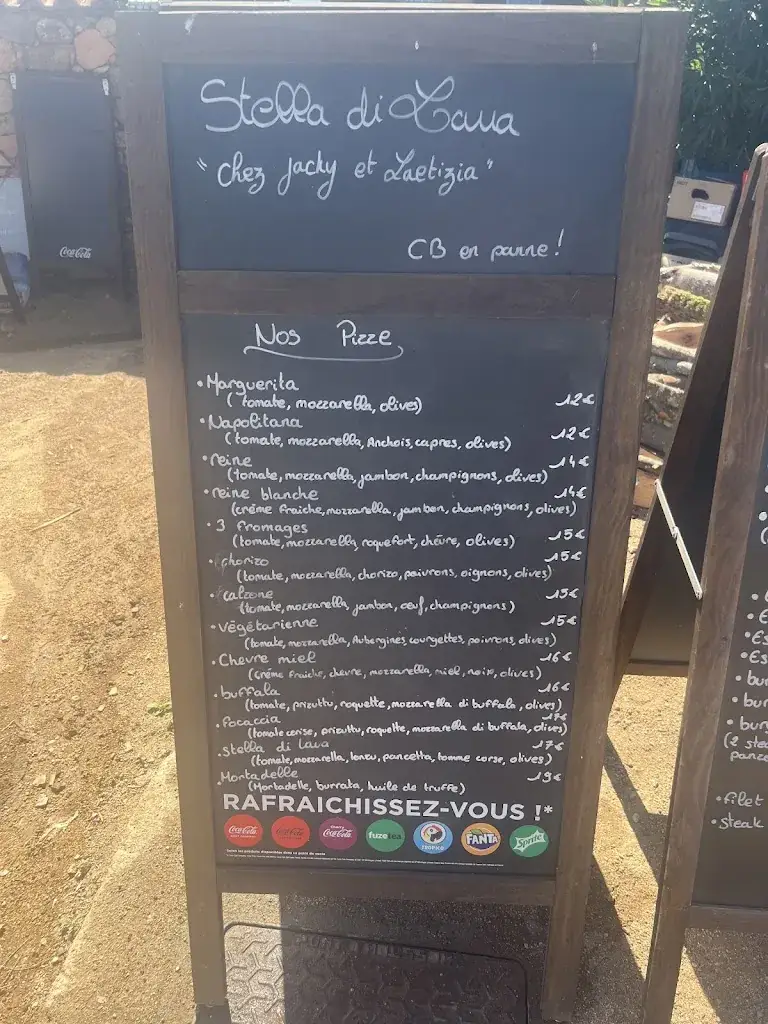 Stella di Lava
"Chez Jacky et Laetizia"
CB en panne!
Nos Pizze
• Marguerita
(tomate, mozzarella, olives) 12€
• Napolitana
(tomate, mozzarella, Anchois, capres, olives) 12€
• reine 14€
(tomate, mozzarella, jambon, champignons, olives)
• reine blanche 14€
(crème fraiche, mozzarella, jambon, champignons, olives)
• 3 fromages 15€
(tomate, mozzarella, roquefort, chèvre, olives)
• chorizo 15€
(tomate, mozzarella, chorizo, poivrons, oignons, olives)
• calzone 15€
(tomate, mozzarella, jambon, œuf, champignons)
• Végétarienne 15€
(tomate, mozzarella, Aubergines, courgettes, poivrons, olives)
• Chevre miel 16€
(crème fraiche, chevre, mozzarella, miel, noix, olives)
• buffala 16€
(tomate, prizuttu, roquette, mozzarella di buffala, olives)
• focaccia 17€
(tomate cerise, prizuttu, roquette, mozzarella di buffala, olives)
• stella di Lava 17€
(tomate, mozzarella, lonzu, pancetta, tomme corse, olives)
• Mortadelle 19€
(Mortadelle, burrata, huile de truffe)
RAFRAICHISSEZ-VOUS !*
Coca-Cola
Coca-Cola
Coca-Cola
fuzetea
TROPICO
FANTA
Sprite
Coca-Cola
• bu
• bur
• burg
(2 stea
• filet
• steak